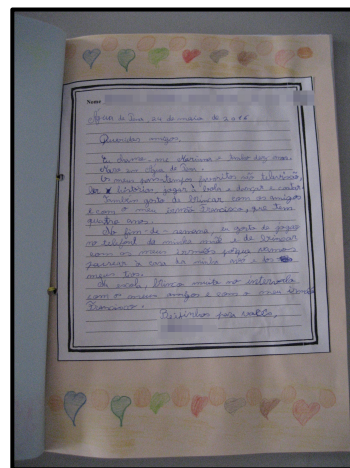 Nome
Água de Pena, 24 de março de 2015
Queridos amigos,
Eu chamo-me Mariana e tenho dez anos.
Moro em Água de Pena.
Os meus passatempos favoritos são televisão,
ler histórias, jogar à bola e dançar e cantar.
Também gosto de brincar com os amigos
e com o meu Francisco, que tem
quatro anos.
No fim-de-semana, eu gosto de jogar
no telefone da minha mãe e de brincar
com os meus porque vamos
passear à casa da minha avó e dos
meus tios.
Na escola, brinco muito no intervalo
com o meus amigos e com o meu
Francisco.
Beijinhos para vocês,